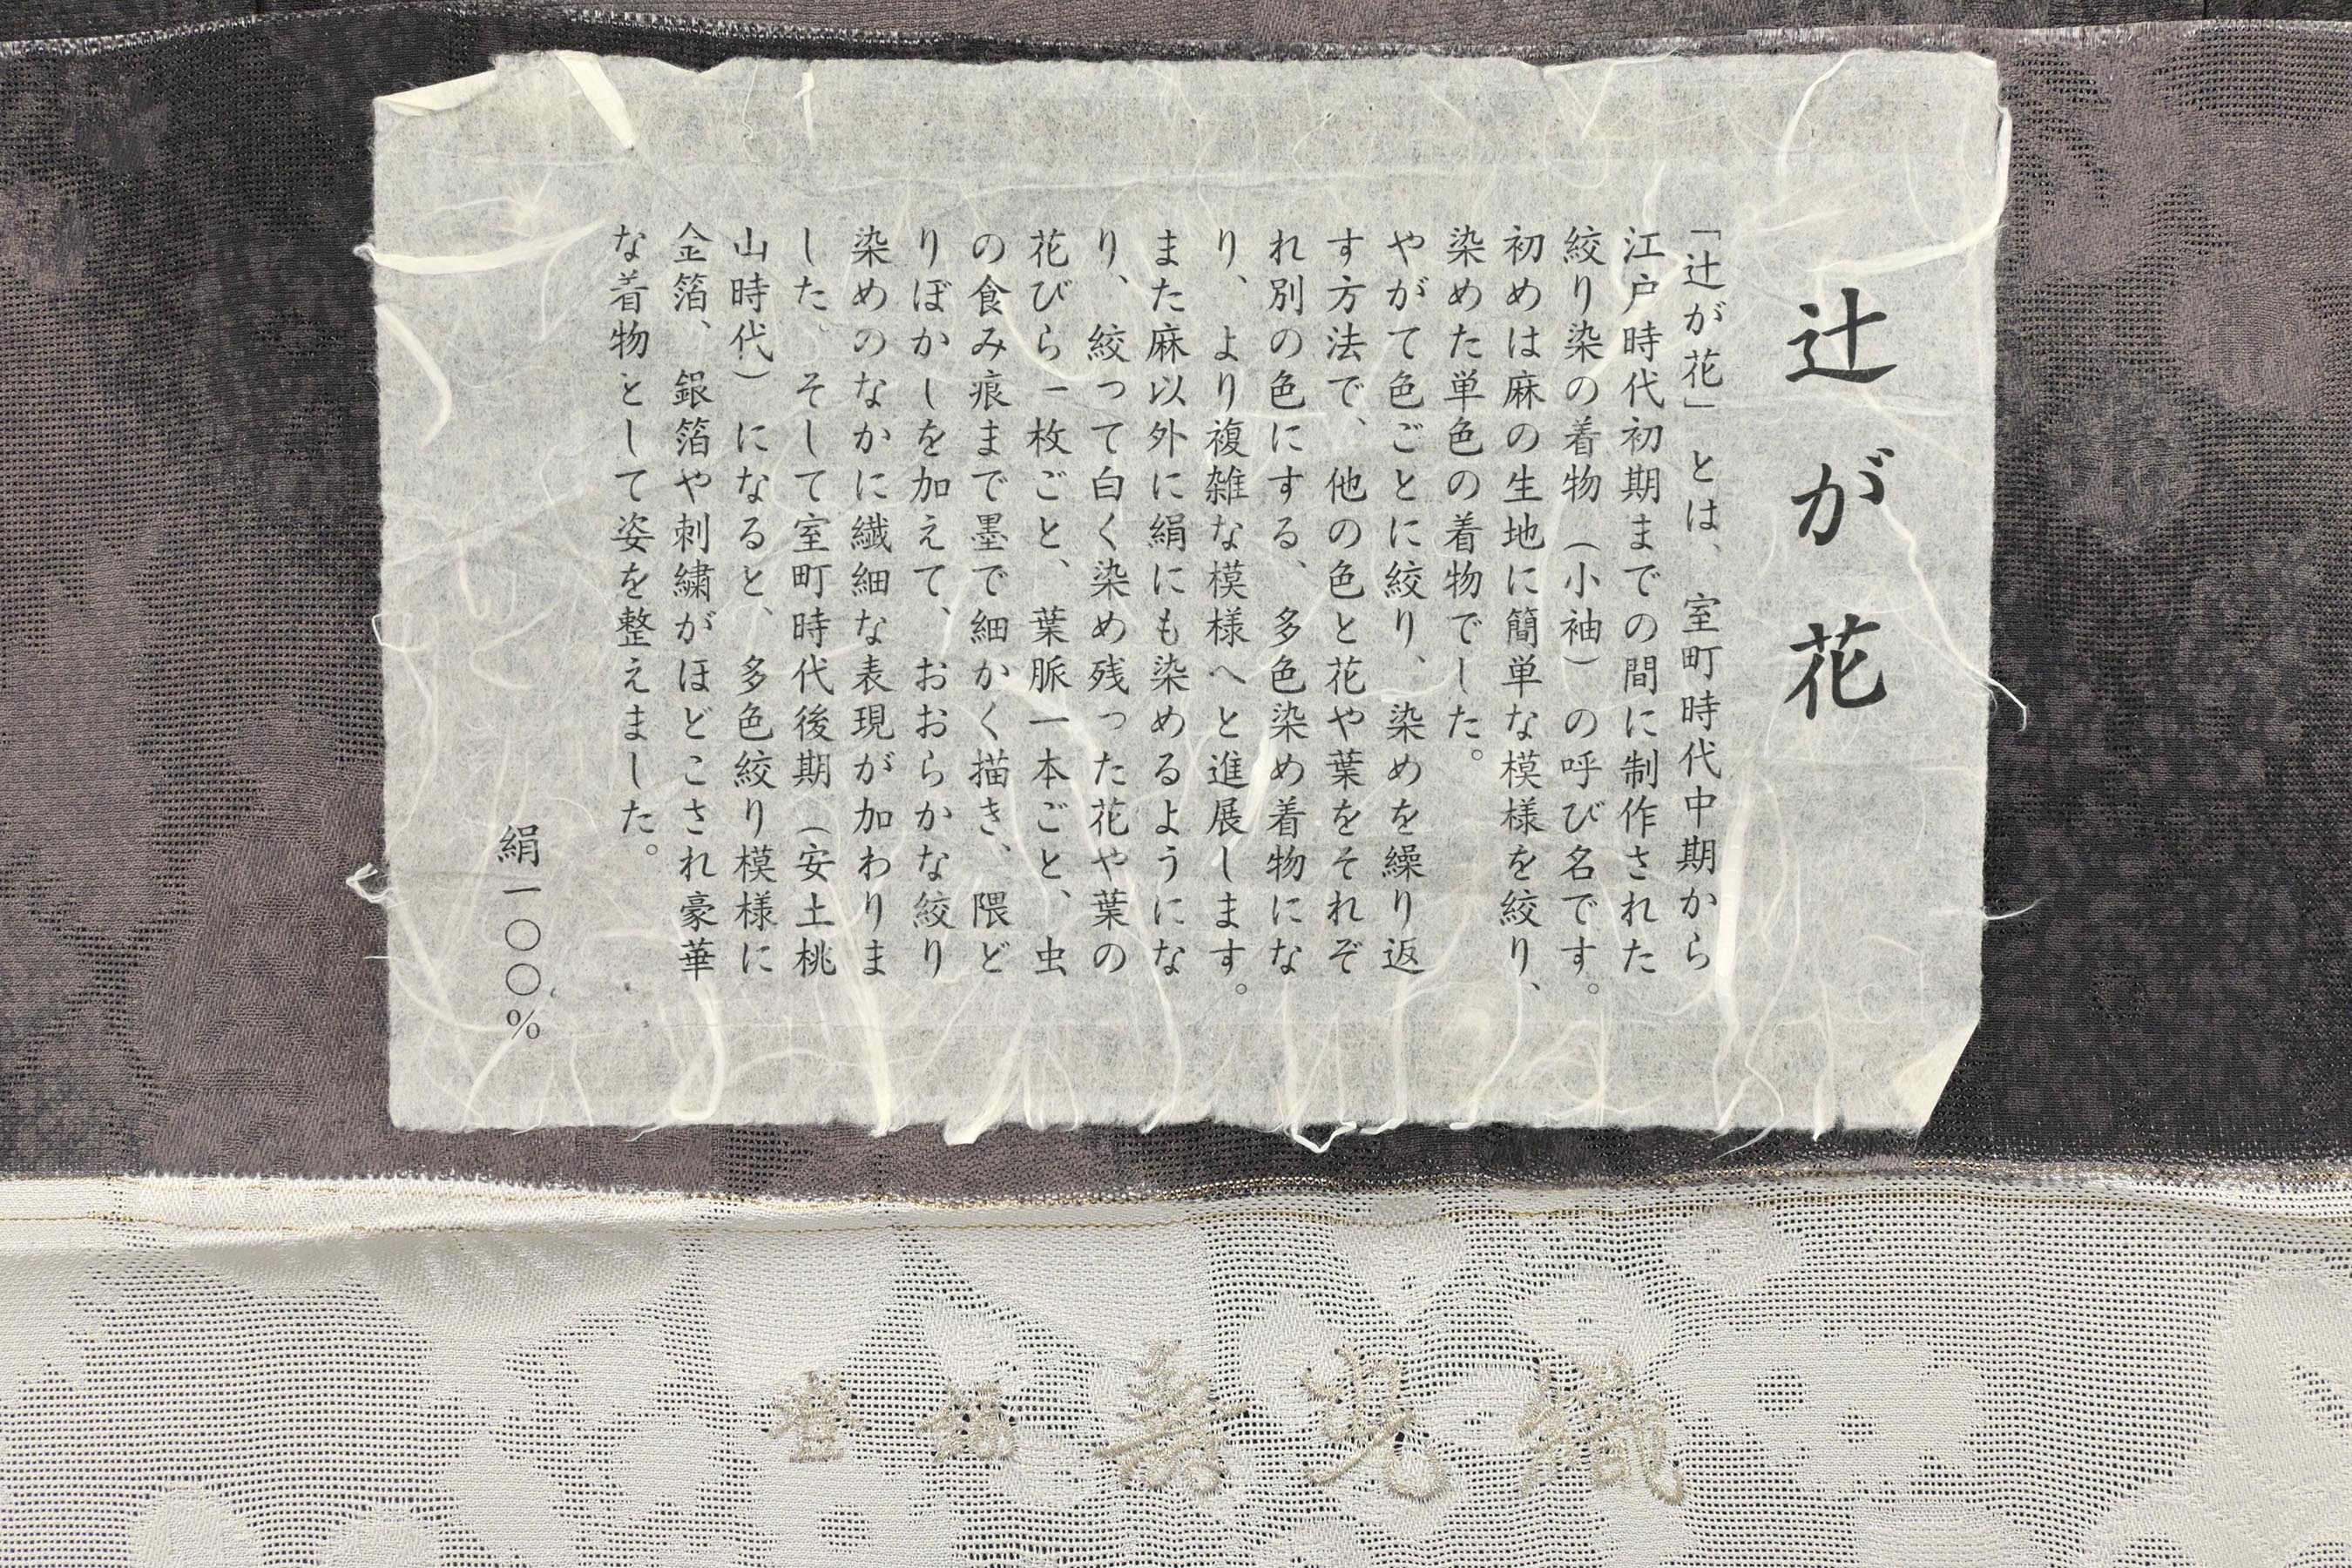 辻が花
「辻が花」とは、室町時代中期から
江戸時代初期までの間に制作された
絞り染の着物（小袖）の呼び名です。
初めは麻の生地に簡単な模様を絞り、
染めた単色の着物でした。
やがて色ごとに絞り、染めを繰り返
す方法で、他の色と花や葉をそれぞ
れ別の色にする、多色染め着物にな
り、より複雑な模様へと進展します。
また麻以外に絹にも染めるようにな
り、絞って白く染め残った花や葉の
花びら一枚ごと、葉脈一本ごと、虫
の食み痕まで墨で細かく描き、隈ど
りぼかしを加えて、おおらかな絞り
染めのなかに繊細な表現が加わりま
した。そして室町時代後期（安土桃
山時代）になると、多色絞り模様に
金箔、銀箔や刺繍がほどこされ豪華
な着物として姿を整えました。
絹一〇〇％